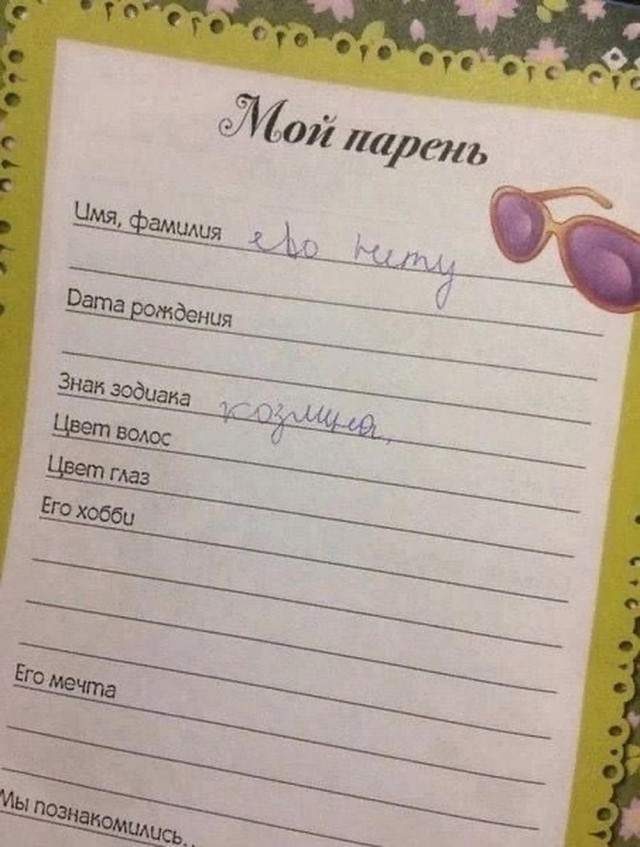 Мой парень
Имя, фамилия его нету
Дата рождения
Знак зодиака козлина,
Цвет волос
Цвет глаз
Его хобби
Его мечта
Мы познакомились..